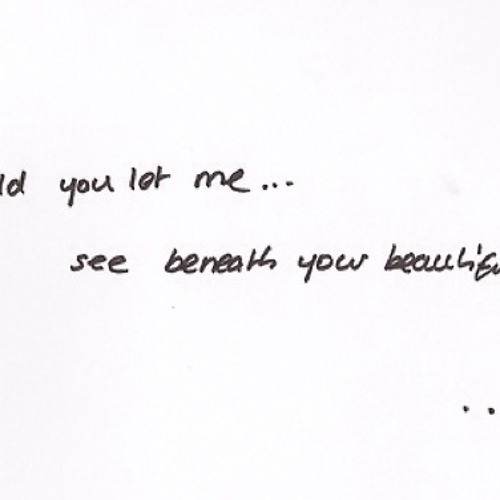 ld you let me...
see beneath your beautifu
..